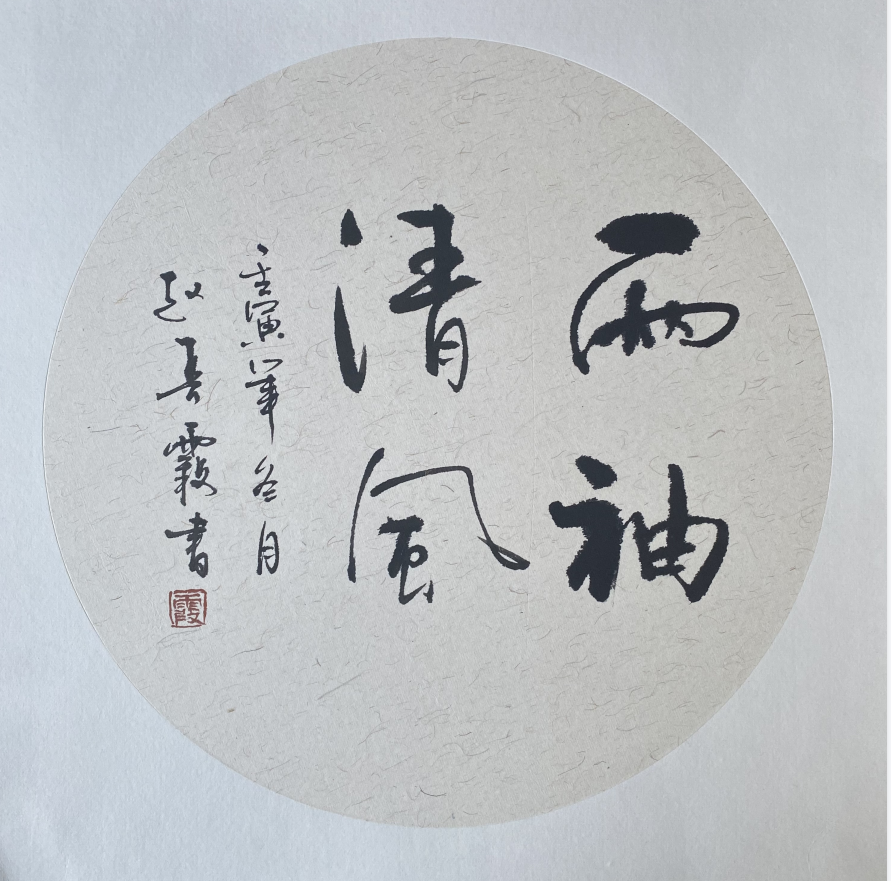 兩袖
清風
壬寅年冬月
赵霞書
霞